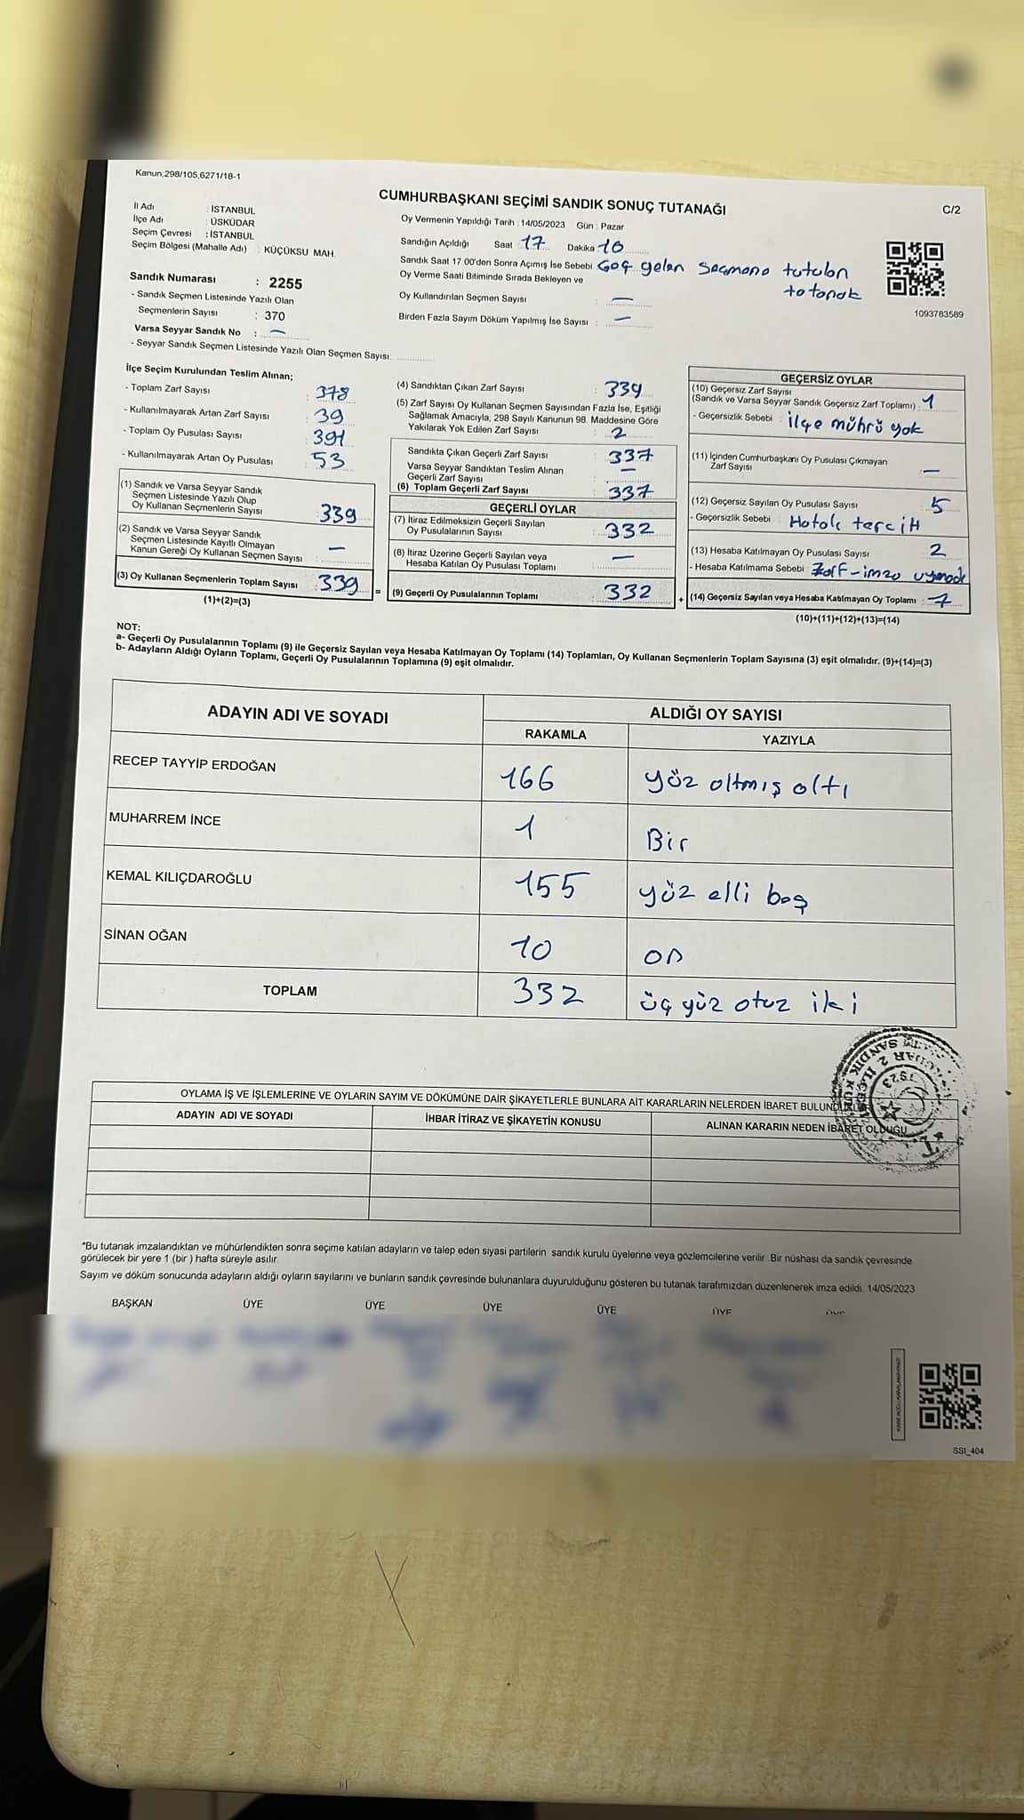 Kanun,298/105,6271/18-1
CUMHURBAŞKANI SEÇİMİ SANDIK SONUÇ TUTANAĞI
C/2
İl Adı : İSTANBUL
İlçe Adı : ÜSKÜDAR
Seçim Çevresi : İSTANBUL
Seçim Bölgesi (Mahalle Adı) : KÜÇÜKSU MAH.
Sandık Numarası : 2255
- Sandık Seçmen Listesinde Yazılı Olan
Seçmenlerin Sayısı : 370
Varsa Seyyar Sandık No : —
- Seyyar Sandık Seçmen Listesinde Yazılı Olan Seçmen Sayısı:
Oy Vermenin Yapıldığı Tarih : 14/05/2023 Gün : Pazar
Sandığın Açıldığı Saat 17 Dakika 10
Sandık Saat 17.00'den Sonra Açımış İse Sebebi Geç gelen seçmene tutulan
tutanak
Oy Verme Saati Bitiminde Sırada Bekleyen ve
Oy Kullandırılan Seçmen Sayısı : —
Birden Fazla Sayım Döküm Yapılmış İse Sayısı : —
1093783589
İlçe Seçim Kurulundan Teslim Alınan;
- Toplam Zarf Sayısı : 378
- Kullanılmayarak Artan Zarf Sayısı : 39
- Toplam Oy Pusulası Sayısı : 391
- Kullanılmayarak Artan Oy Pusulası : 53
(1) Sandık ve Varsa Seyyar Sandık
Seçmen Listesinde Yazılı Olup
Oy Kullanan Seçmenlerin Sayısı : 339
(2) Sandık ve Varsa Seyyar Sandık
Seçmen Listesinde Kayıtlı Olmayan
Kanun Gereği Oy Kullanan Seçmen Sayısı : —
(3) Oy Kullanan Seçmenlerin Toplam Sayısı : 339
(1)+(2)=(3)
=
(4) Sandıktan Çıkan Zarf Sayısı : 339
(5) Zarf Sayısı Oy Kullanan Seçmen Sayısından Fazla İse, Eşitliği
Sağlamak Amacıyla, 298 Sayılı Kanunun 98. Maddesine Göre
Yakılarak Yok Edilen Zarf Sayısı : 2
Sandıkta Çıkan Geçerli Zarf Sayısı : 337
Varsa Seyyar Sandıktan Teslim Alınan
Geçerli Zarf Sayısı : —
(6) Toplam Geçerli Zarf Sayısı : 337
GEÇERLİ OYLAR
(7) İtiraz Edilmeksizin Geçerli Sayılan
Oy Pusulalarının Sayısı : 332
(8) İtiraz Üzerine Geçerli Sayılan veya
Hesaba Katılan Oy Pusulası Toplamı : —
(9) Geçerli Oy Pusulalarının Toplamı : 332
+
GEÇERSİZ OYLAR
(10) Geçersiz Zarf Sayısı
(Sandık ve Varsa Seyyar Sandık Geçersiz Zarf Toplamı) : 1
- Geçersizlik Sebebi : ilçe mührü yok
(11) İçinden Cumhurbaşkanı Oy Pusulası Çıkmayan
Zarf Sayısı : —
(12) Geçersiz Sayılan Oy Pusulası Sayısı : 5
- Geçersizlik Sebebi : Hatalı tercih
(13) Hesaba Katılmayan Oy Pusulası Sayısı : 2
- Hesaba Katılmama Sebebi : Zarf-imza uymadı
(14) Geçersiz Sayılan veya Hesaba Katılmayan Oy Toplamı : 7
(10)+(11)+(12)+(13)=(14)
NOT:
a- Geçerli Oy Pusulalarının Toplamı (9) ile Geçersiz Sayılan veya Hesaba Katılmayan Oy Toplamı (14) Toplamları, Oy Kullanan Seçmenlerin Toplam Sayısına (3) eşit olmalıdır. (9)+(14)=(3)
b- Adayların Aldığı Oyların Toplamı, Geçerli Oy Pusulalarının Toplamına (9) eşit olmalıdır.
ADAYIN ADI VE SOYADI ALDIĞI OY SAYISI
RAKAMLA YAZIYLA
RECEP TAYYİP ERDOĞAN 166 yüz altmış altı
MUHARREM İNCE 1 Bir
KEMAL KILIÇDAROĞLU 155 yüz elli beş
SİNAN OĞAN 10 on
TOPLAM 332 üç yüz otuz iki
OYLAMA İŞ VE İŞLEMLERİNE VE OYLARIN SAYIM VE DÖKÜMÜNE DAİR ŞİKAYETLERLE BUNLARA AİT KARARLARIN NELERDEN İBARET BULUNDUĞU
ADAYIN ADI VE SOYADI İHBAR İTİRAZ VE ŞİKAYETİN KONUSU ALINAN KARARIN NEDEN İBARET OLDUĞU
1923
*Bu tutanak imzalandıktan ve mühürlendikten sonra seçime katılan adayların ve talep eden siyasi partilerin sandık kurulu üyelerine veya gözlemcilerine verilir. Bir nüshası da sandık çevresinde
görülecek bir yere 1 (bir) hafta süreyle asılır.
Sayım ve döküm sonucunda adayların aldığı oyların sayılarını ve bunların sandık çevresinde bulunanlara duyurulduğunu gösteren bu tutanak tarafımızdan düzenlenerek imza edildi. 14/05/2023
BAŞKAN ÜYE ÜYE ÜYE ÜYE ÜYE
SSI_404